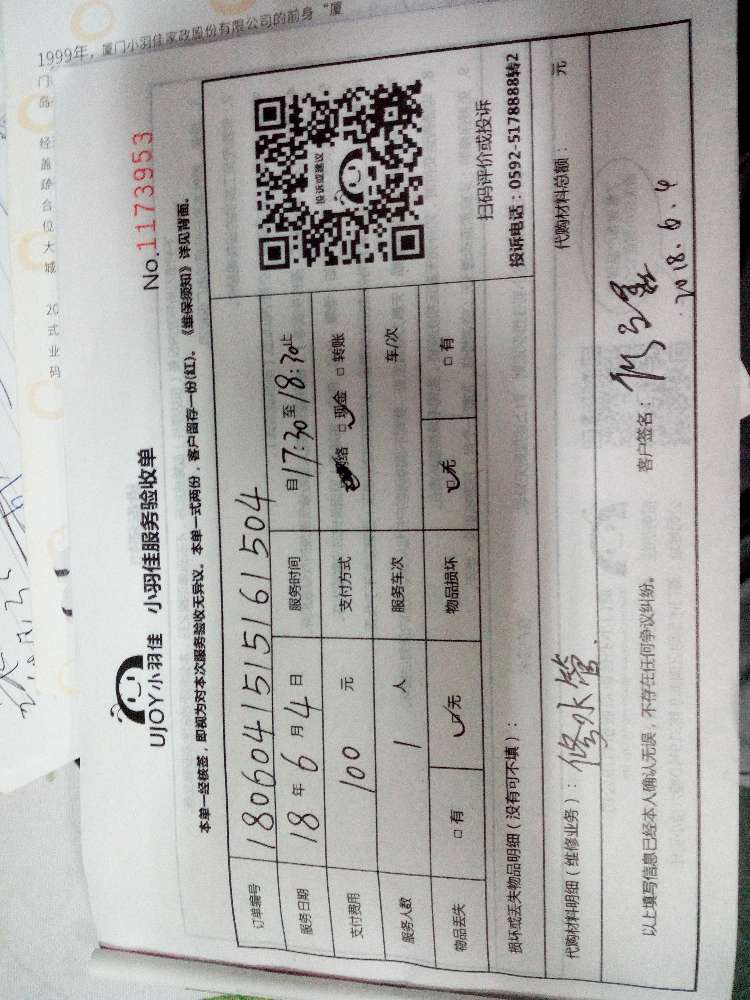 1999年，厦门小羽佳家政股份有限公司的前身“厦
UJOY小羽佳 小羽佳服务验收单
No.1173953
本单一经核签，即视为对本次服务验收无异议。本单一式两份，客户留存一份(红)。《维保须知》详见背面。
订单编号 180604151516 1504
服务日期 18年6月4日 服务时间 自17:30至18:30止
支付费用 100元 支付方式 □现金 □转账
服务人数 1人 服务车次 车/次
物品丢失 □有 □无 物品损坏 □无 □有
投诉或建议
扫码评价或投诉
投诉电话：0592-5178888转2
损坏或丢失物品明细（没有可不填）：
代购材料明细（维修业务）：修水管. 代购材料总额： 元
以上填写信息已经本人确认无误，不存在任何争议纠纷。 客户签名：
2018.6.4